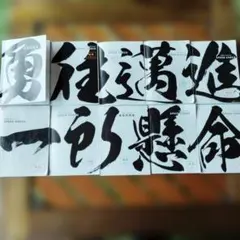 勇往邁進
一所懸命